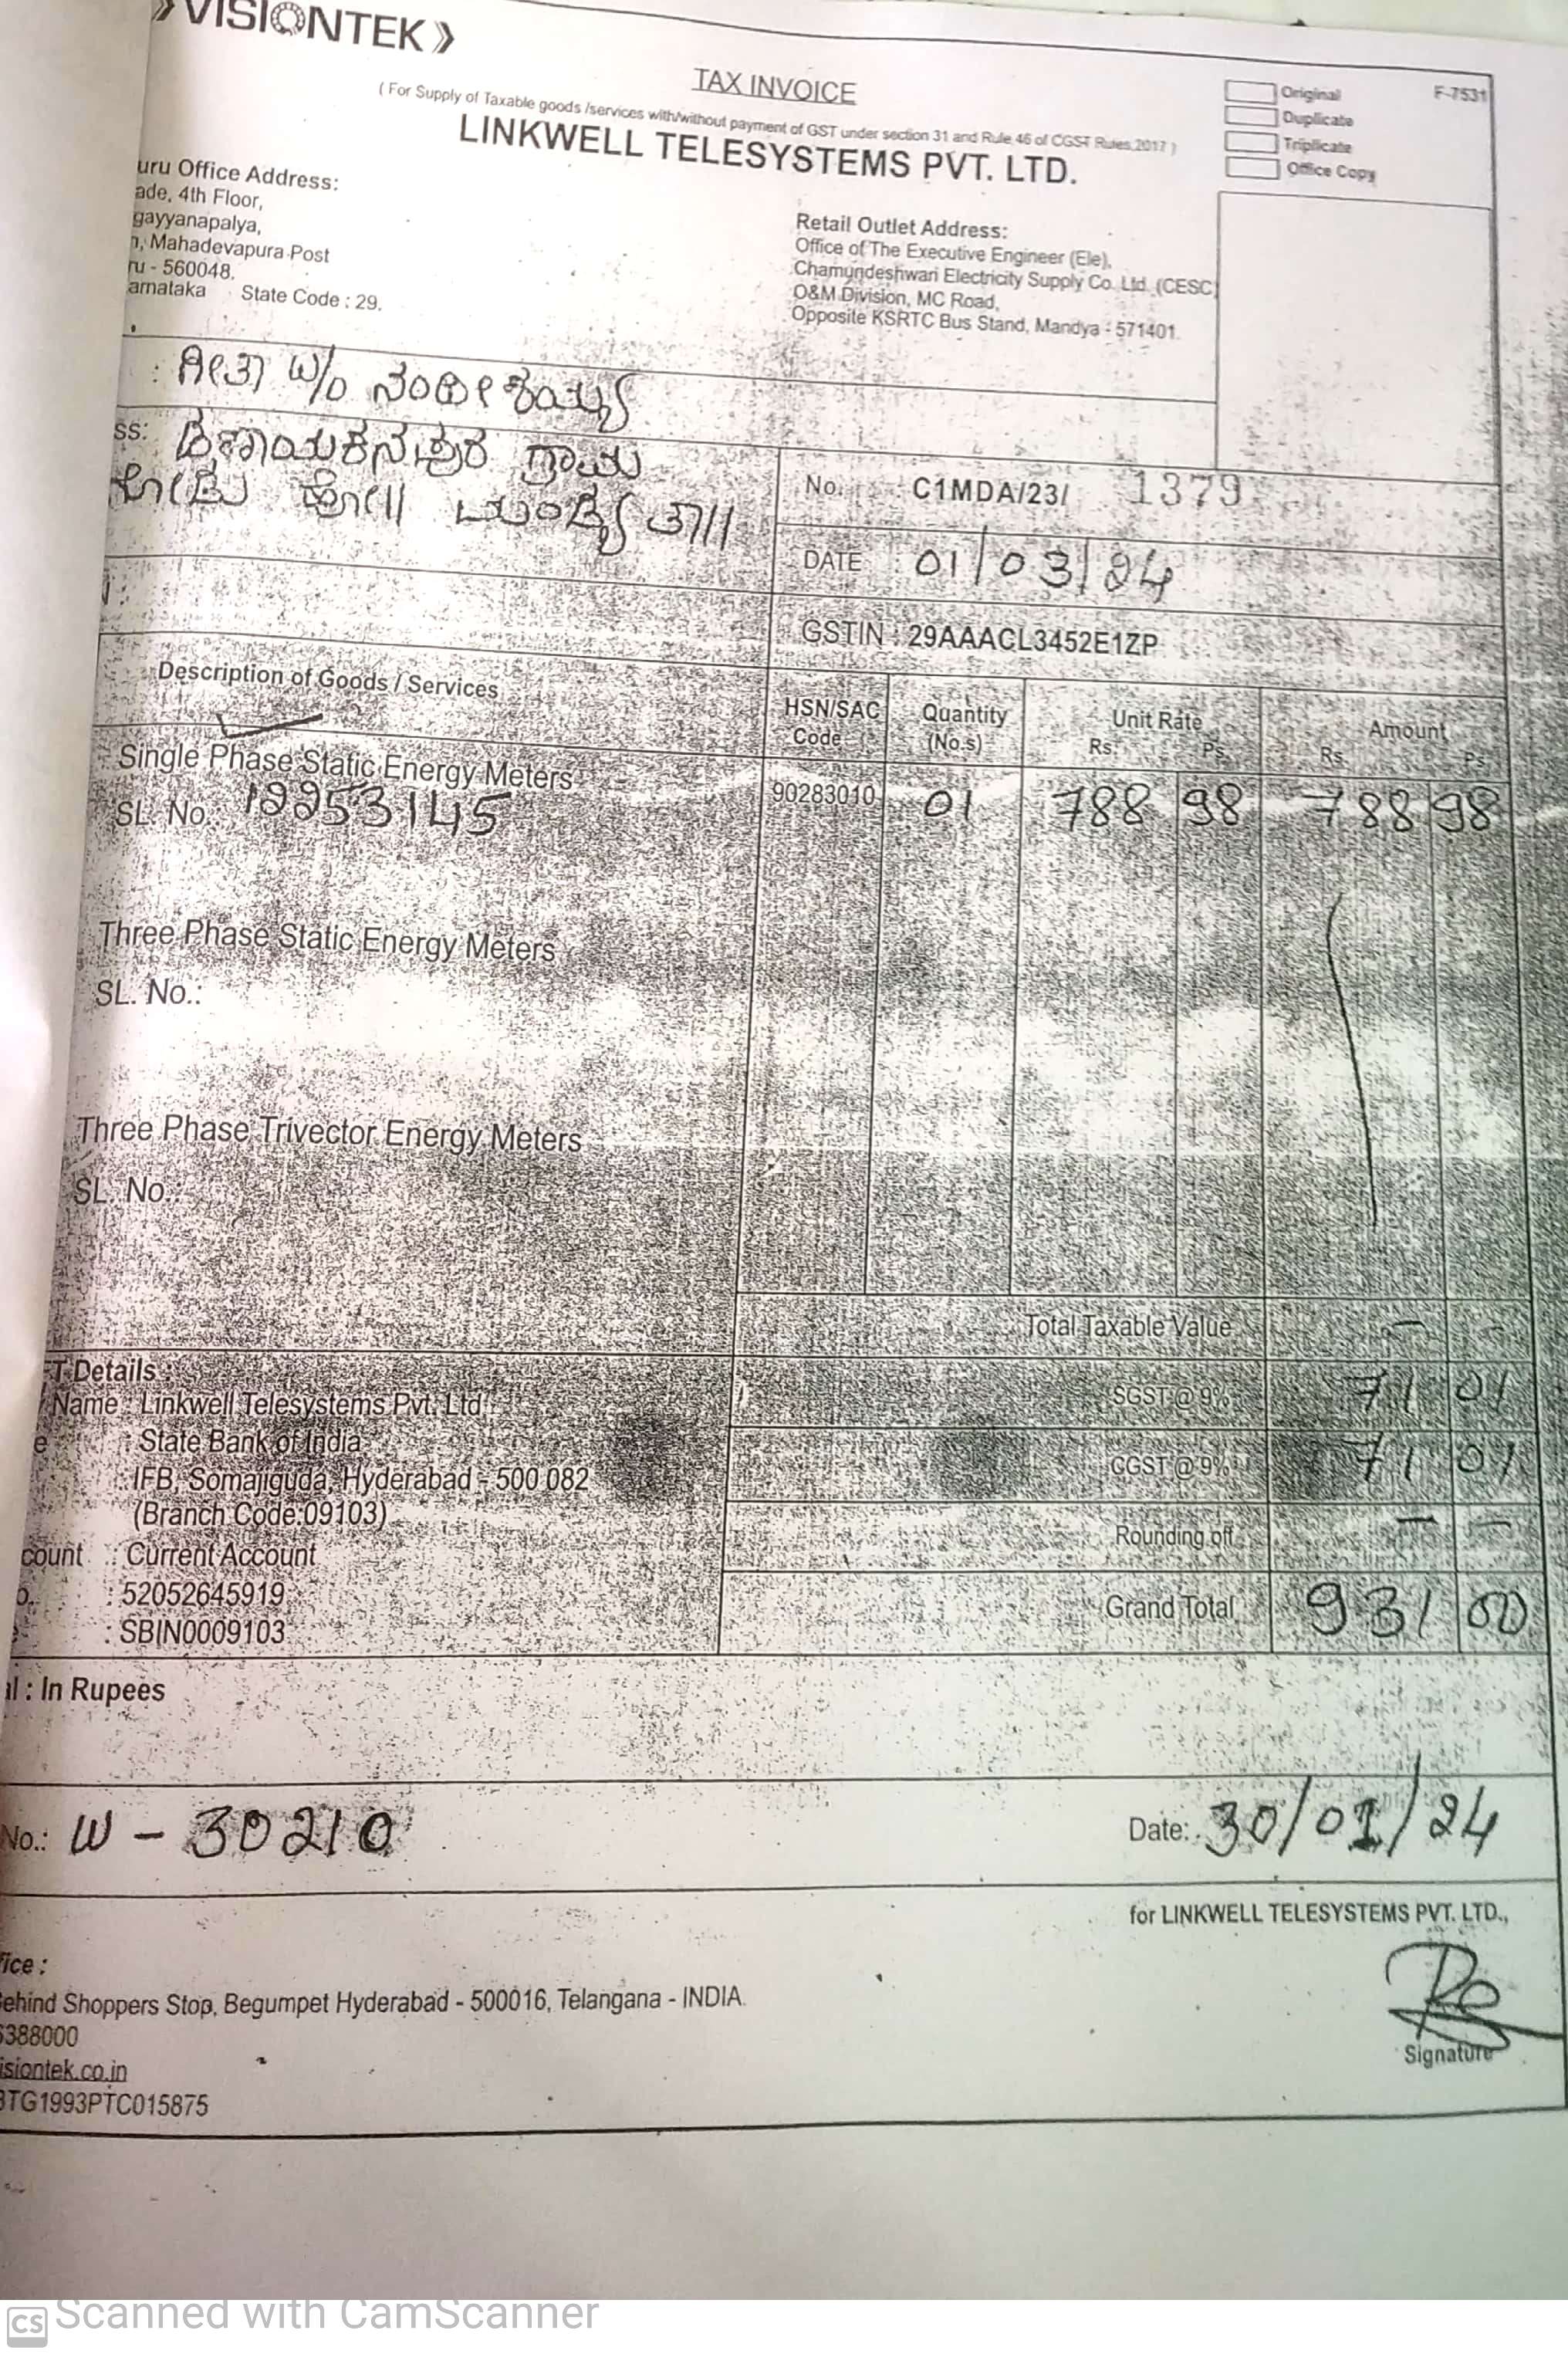 VISIONTEK
TAX INVOICE
( For Supply of Taxable goods /services with/without payment of GST under section 31 and Rule 46 of CGST Rules,2017 )
LINKWELL TELESYSTEMS PVT. LTD.
Original
Duplicate
Triplicate
Office Copy
F-7531
uru Office Address:
ade, 4th Floor,
gayyanapalya,
Mahadevapura Post
ru - 560048.
arnataka State Code : 29.
Retail Outlet Address:
Office of The Executive Engineer (Ele),
Chamundeshwari Electricity Supply Co. Ltd. (CESC
O&M Division, MC Road,
Opposite KSRTC Bus Stand, Mandya - 571401.
: ಗೀತಾ W/o
ss: ಗ್ರಾಮ
ಹೋ|| ಮಂಡ್ಯ ತಾ||
No. : C1MDA/23/ 1379
DATE : 01/03/24
GSTIN : 29AAACL3452E1ZP
Description of Goods / Services
HSN/SAC Code
Quantity (No.s)
Unit Rate Rs. Ps.
Amount Rs. Ps.
Single Phase Static Energy Meters
SL. No.: 19953145
90283010 01 788 98 788 98
Three Phase Static Energy Meters
SL. No.:
Three Phase Trivector Energy Meters
SL. No.:
Total Taxable Value — -
SGST @ 9% 71 01
CGST @ 9% 71 01
Rounding off — —
Grand Total 931 00
T Details :
Name : Linkwell Telesystems Pvt. Ltd
e : State Bank of India
: IFB, Somajiguda, Hyderabad - 500 082
(Branch Code:09103)
count : Current Account
o. : 52052645919
: SBIN0009103
al : In Rupees
No.: W - 30210
Date: 30/01/24
for LINKWELL TELESYSTEMS PVT. LTD.,
Signature
fice :
ehind Shoppers Stop, Begumpet Hyderabad - 500016, Telangana - INDIA.
6388000
isiontek.co.in
TG1993PTC015875
CS Scanned with CamScanner